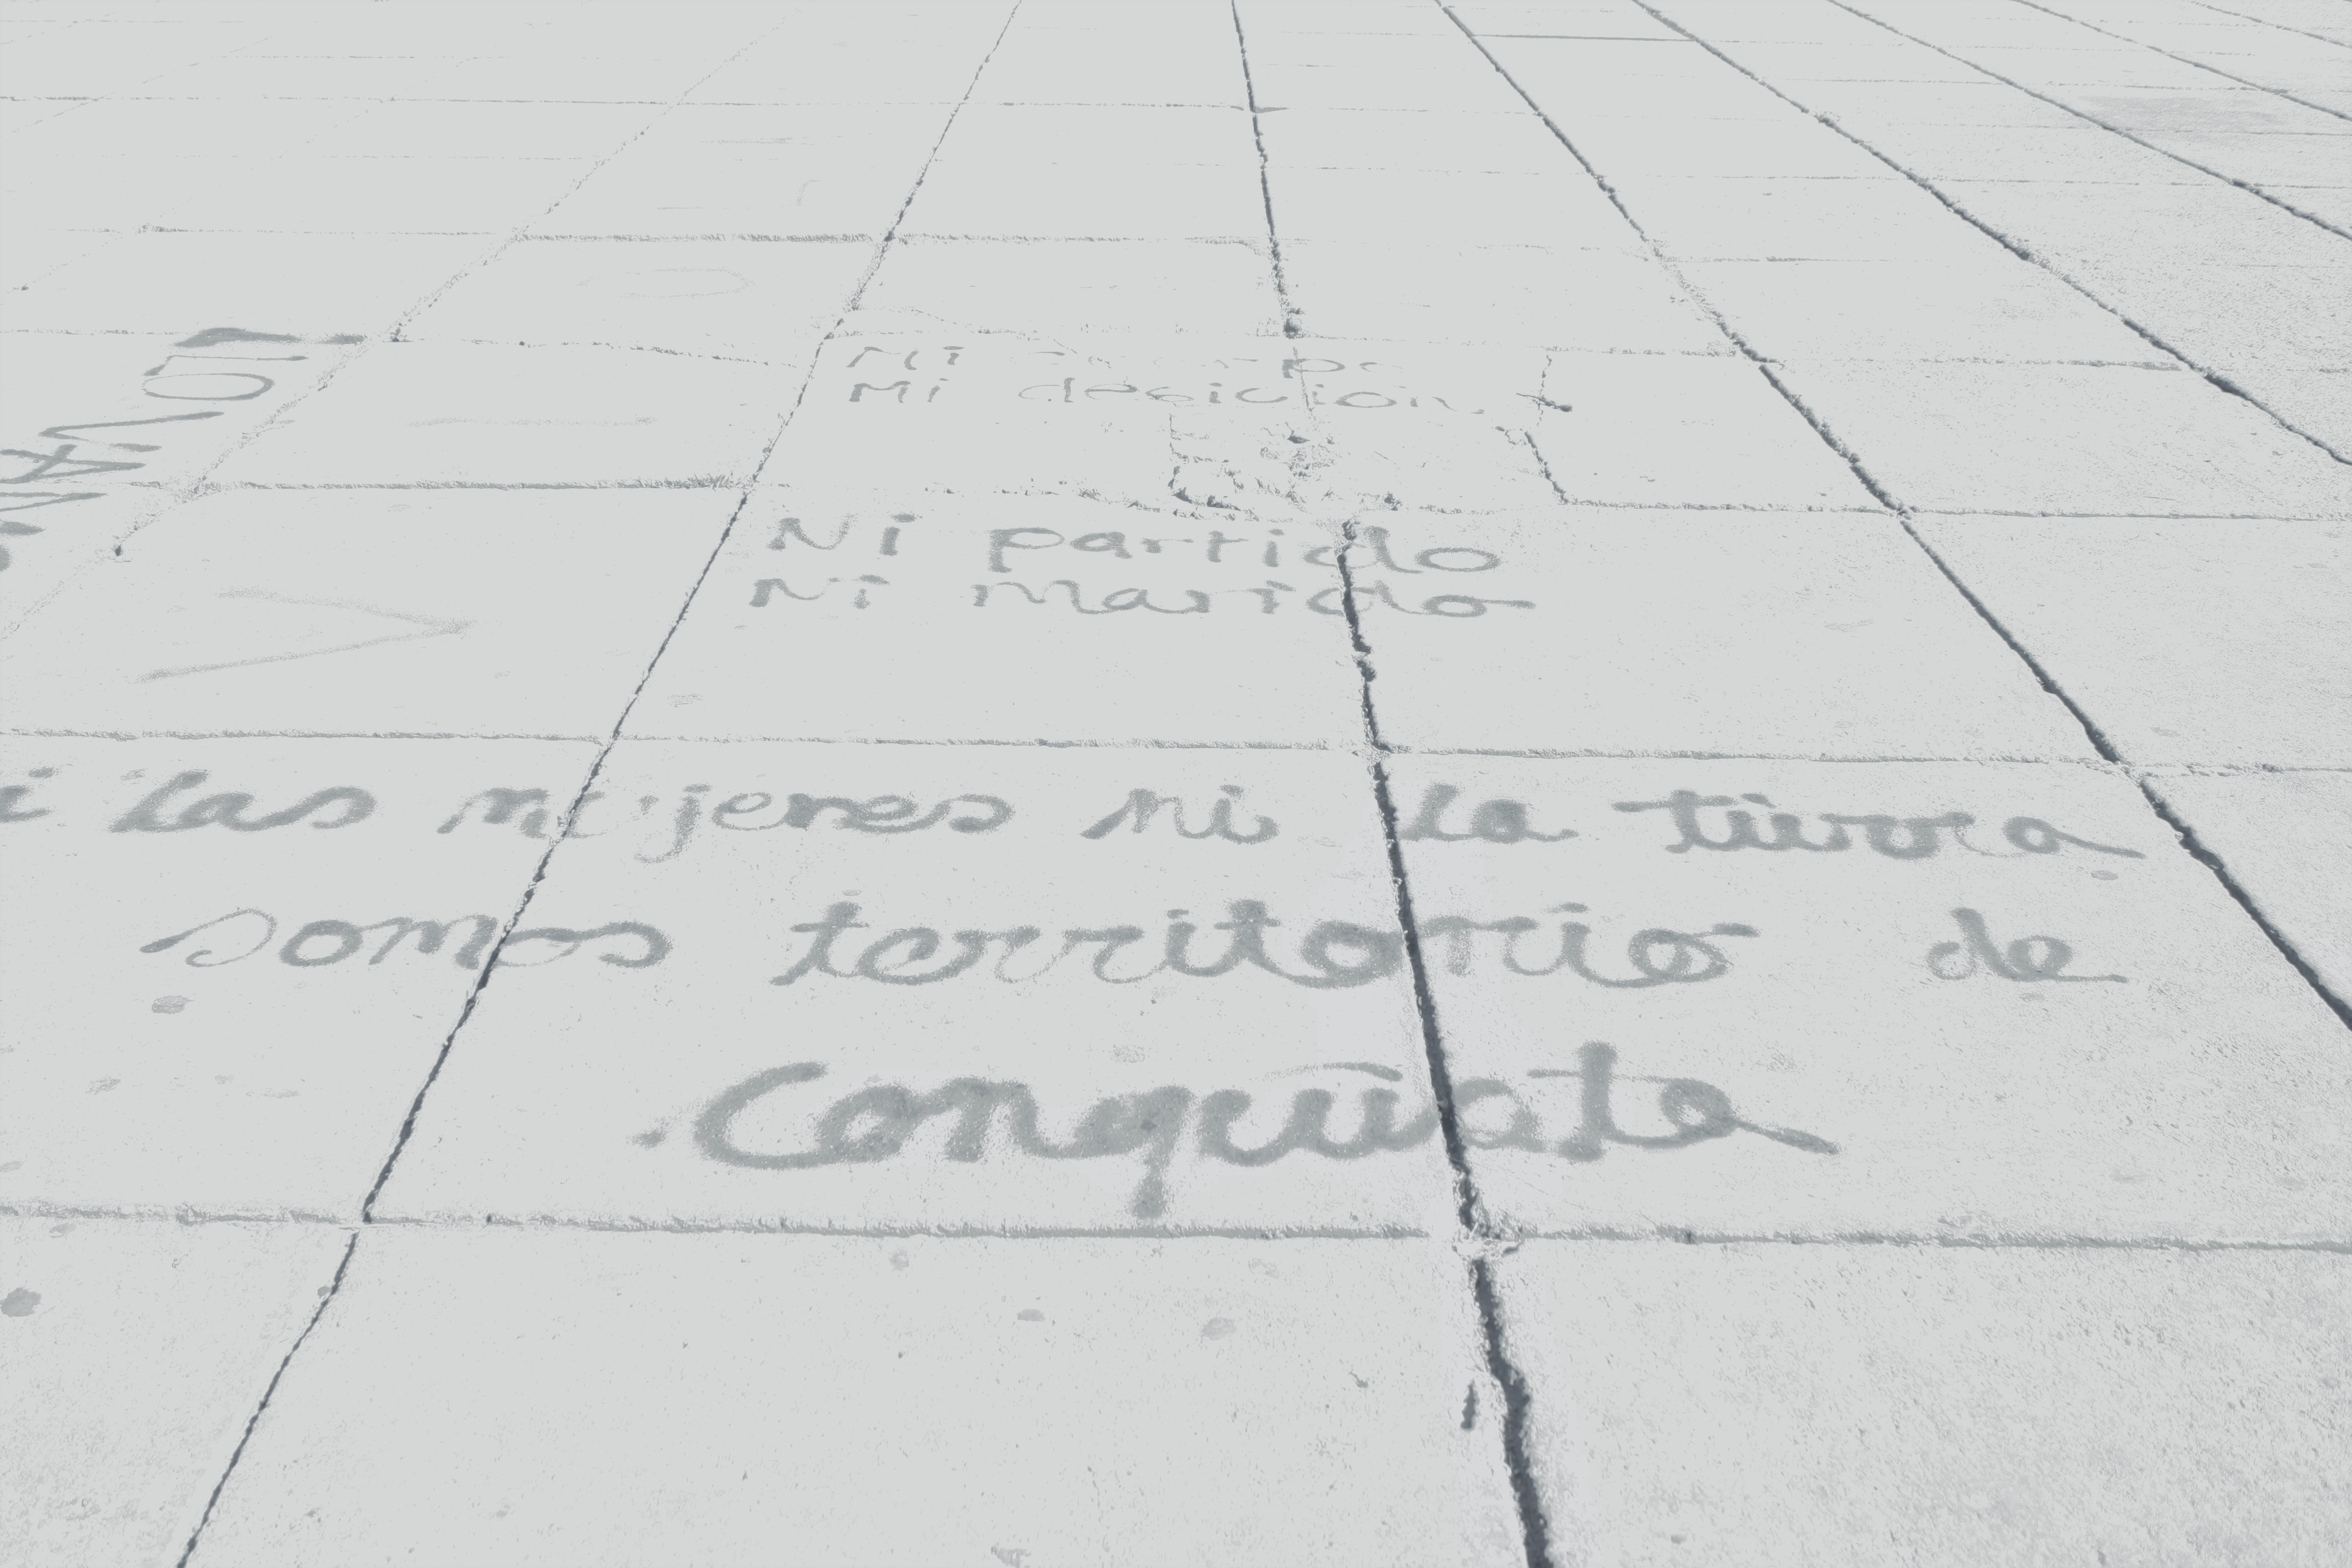 Mi
Mi desicion
Ni partido
Ni marido
i las mujeres ni la tierra
somos territorio de
Conquista